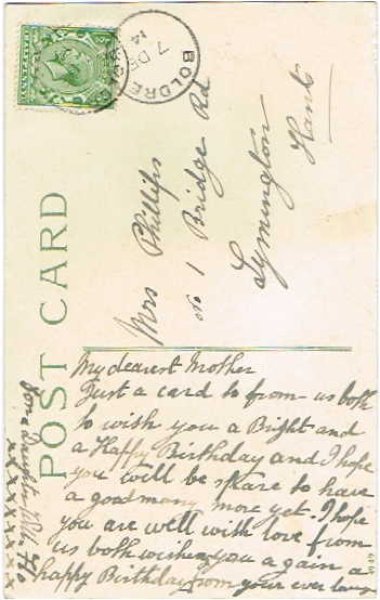 POST CARD
BOLDRE
7 DE
14
Mrs Phillips
No 1 Bridge Rd
Lymington
Hants
My dearest Mother
Just a card to from us both
to wish you a Bright and
a Happy Birthday and I hope
you will be spare to have
a good many more yet. I hope
you are well with love from
us both wishen you a gain a
happy Birthday from your ever loving
xxxxxxxx